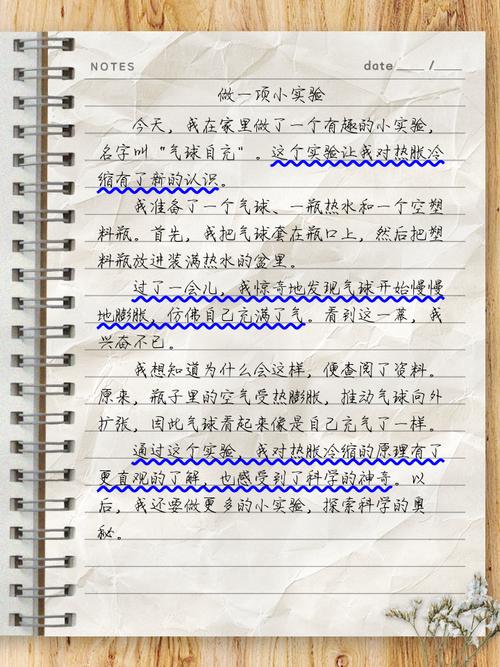 NOTES date ____ /____
做一项小实验
今天，我在家里做了一个有趣的小实验，
名字叫“气球自充”。这个实验让我对热胀冷
缩有了新的认识。
我准备了一个气球、一瓶热水和一个空塑
料瓶。首先，我把气球套在瓶口上，然后把塑
料瓶放进装满热水的盆里。
过了一会儿，我惊奇地发现气球开始慢慢
地膨胀，仿佛自己充满了气。看到这一幕，我
兴奋不已。
我想知道为什么会这样，便查阅了资料。
原来，瓶子里的空气受热膨胀，推动气球向外
扩张，因此气球看起来像是自己充气了一样。
通过这个实验，我对热胀冷缩的原理有了
更直观的了解，也感受到了科学的神奇。以
后，我还要做更多的小实验，探索科学的奥
秘。